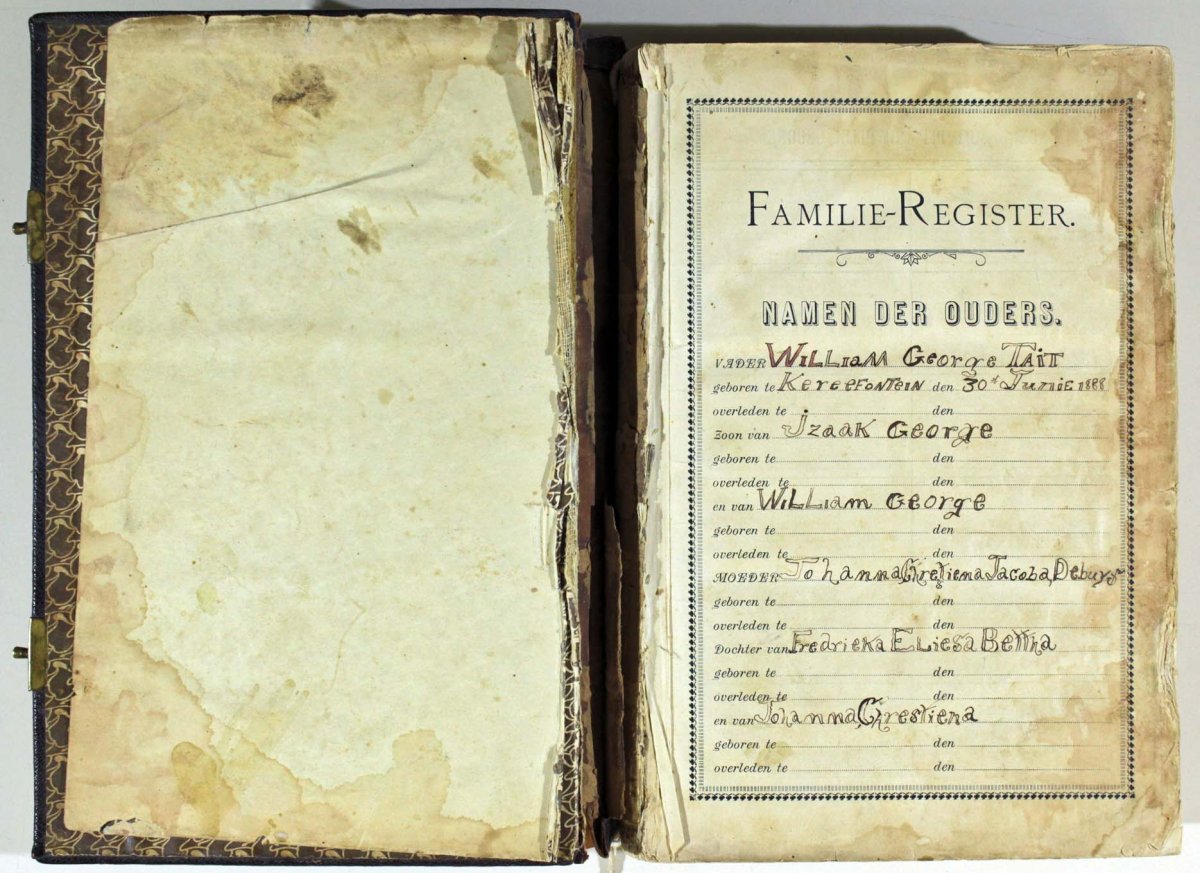 FAMILIE-REGISTER.
NAMEN DER OUDERS.
VADER WILLIAM George TAIT
geboren te KereeFONTEIN den 30st JUNIE 1888
overleden te den
Zoon van Jzaak George
geboren te den
overleden te den
en van WiLLiam George
geboren te den
overleden te den
MOEDER Johanna Chrestiena Jacoba Debuys
geboren te den
overleden te den
Dochter van Fredrieka ELiesa Bettha
geboren te den
overleden te den
en van Johanna Chrestiena
geboren te den
overleden te den